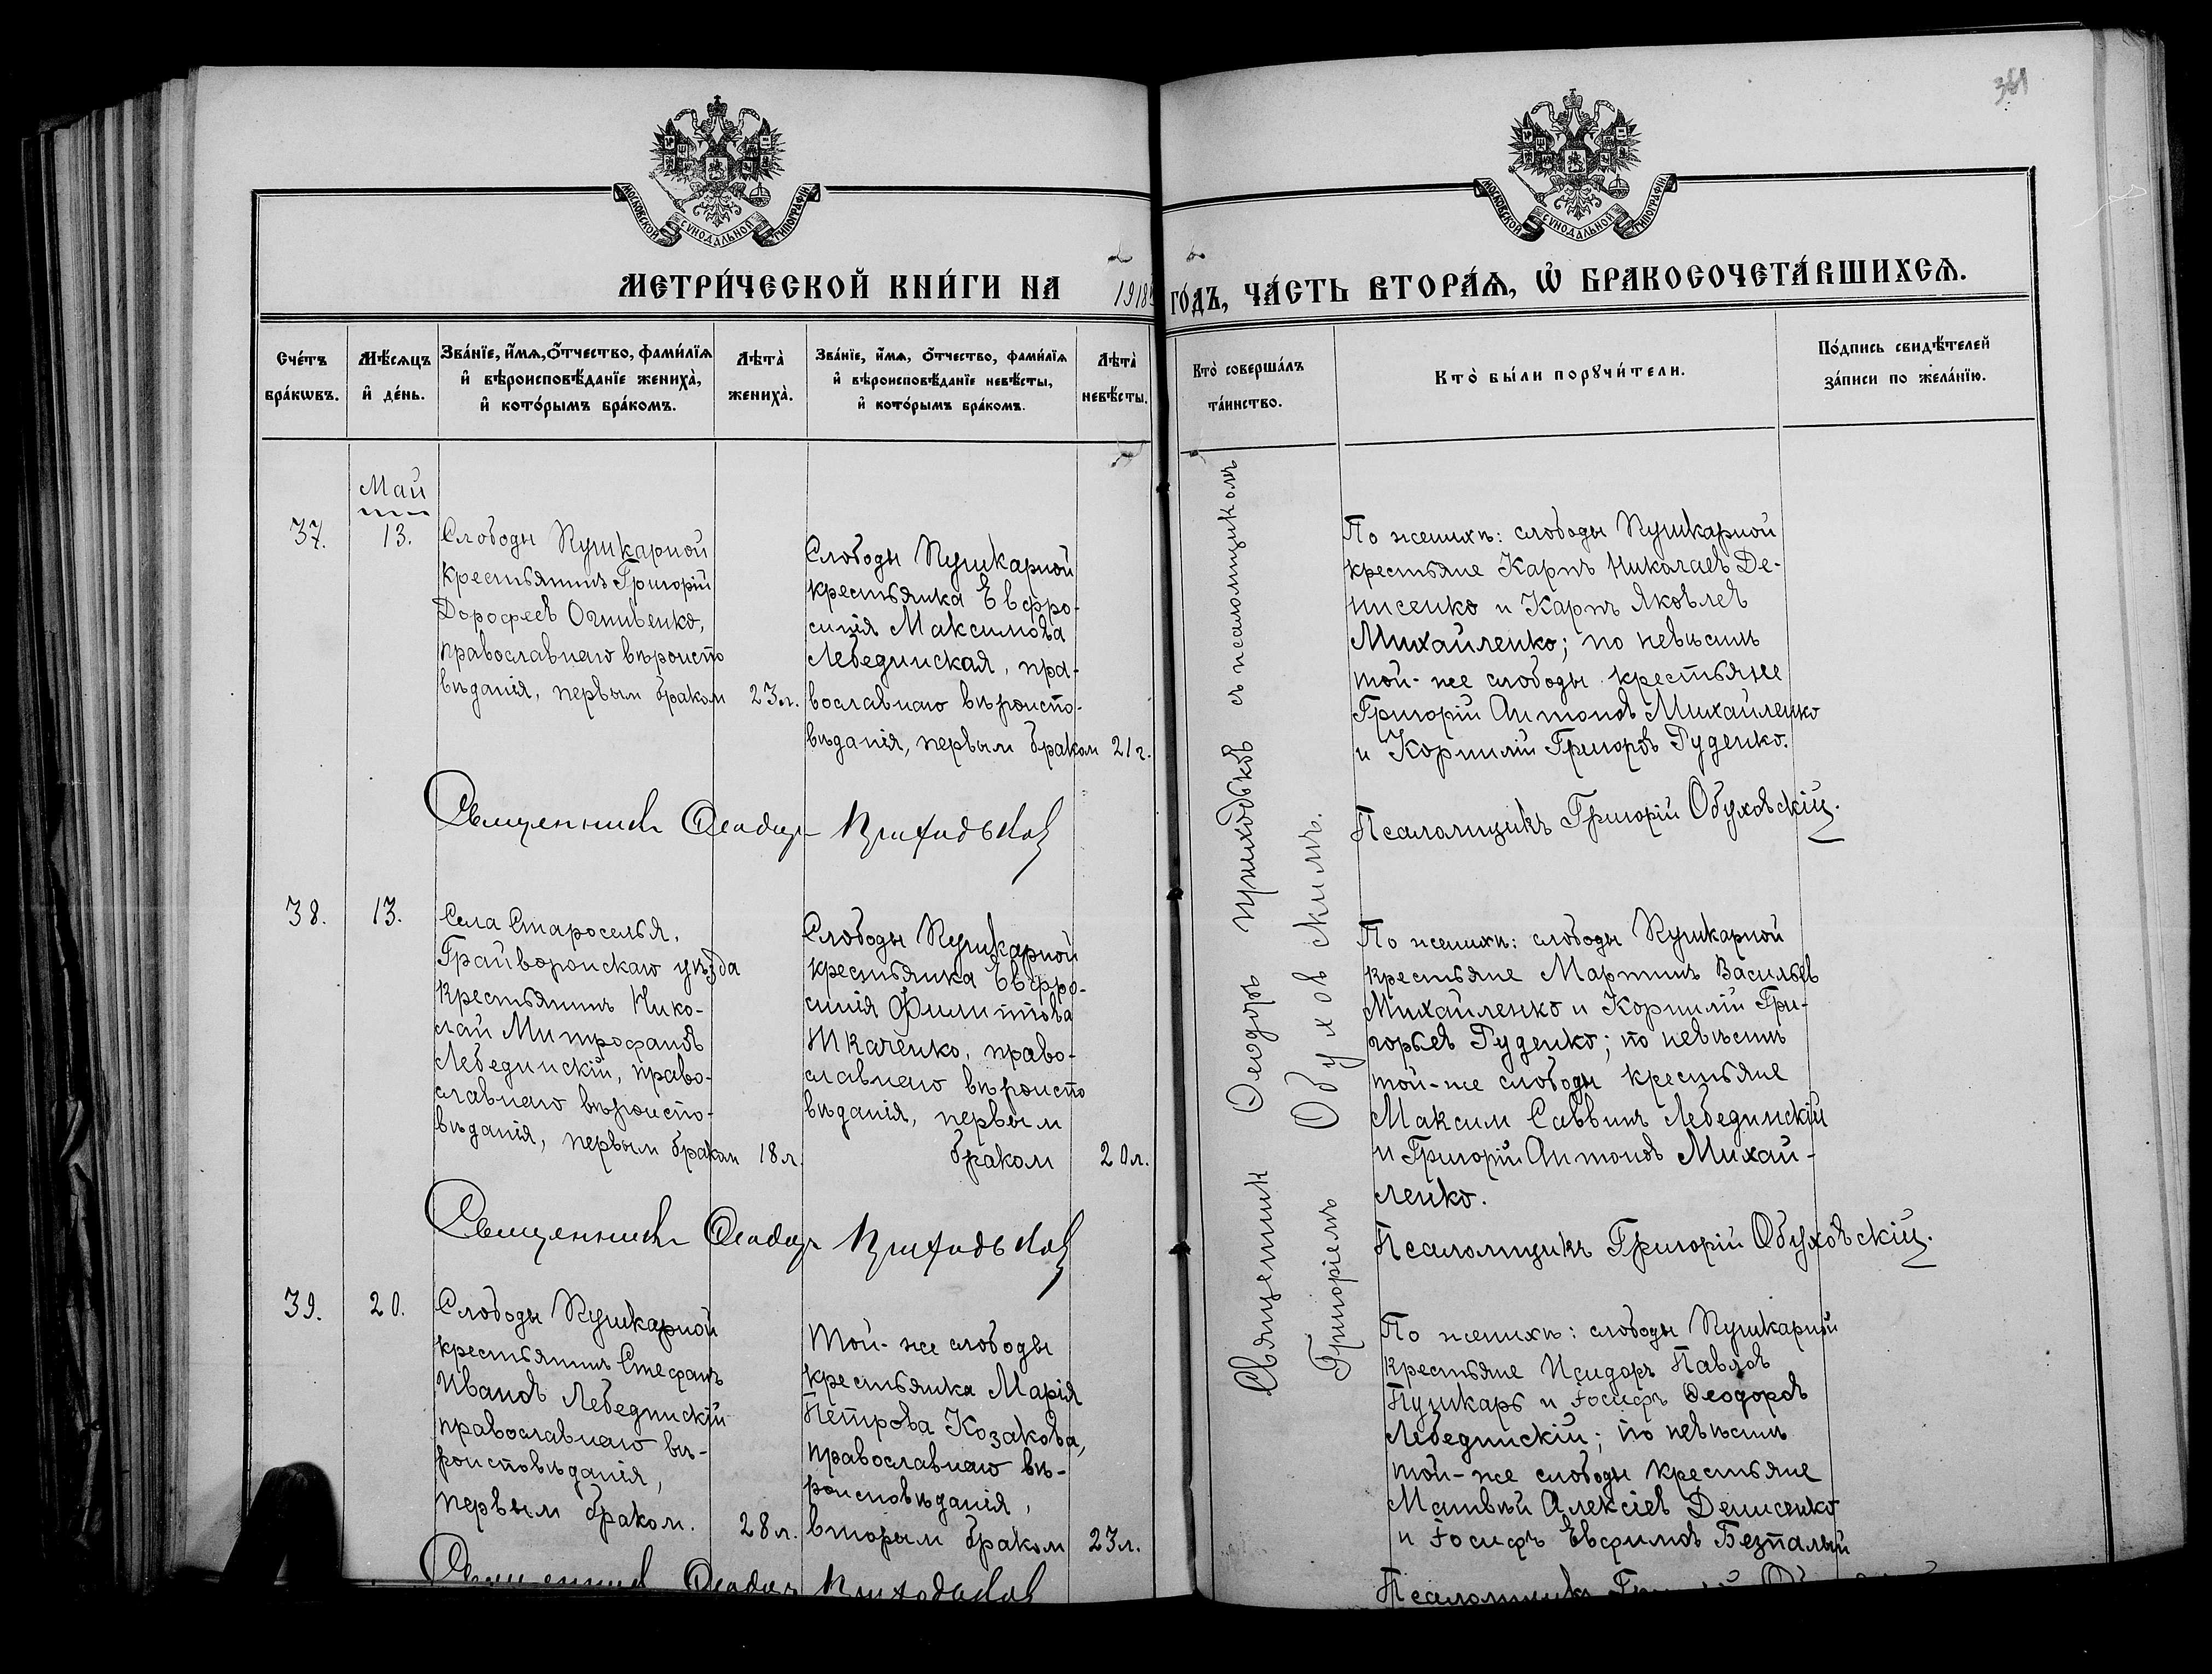 361
МОСКОВСКОЙ СУНОДАЛЬНОЙ ТИПОГРАФІИ
МОСКОВСКОЙ СУНОДАЛЬНОЙ ТИПОГРАФІИ
МЕТРИ́ЧЕСКОЙ КНИ́ГИ НА 1918 ГО́ДЪ, ЧА́СТЬ ВТОРА́Ѧ, Ѽ БРАКОСОЧЕТА́ВШИХСѦ.
Сче́тъ бра́кѡвъ.
Мѣ́сяцъ и҆ де́нь.
Зва́нїе, и҆́мѧ, ѻ҆́тчество, фами́лїѧ
и҆ вѣроисповѣ́данїе жениха̀,
и҆ кото́рымъ бра́комъ.
Лѣта̀ жениха̀.
Зва́нїе, и҆́мѧ, ѻ҆́тчество, фами́лїѧ
и҆ вѣроисповѣ́данїе невѣ́сты,
и҆ кото́рымъ бра́комъ.
Лѣта̀ невѣ́сты.
Кто̀ соверша́лъ
та́инство.
Кто̀ бы́ли порꙋчи́тели.
По́дпись свидѣ́телей
за́писи по жела́нїю.
Май
37.
13.
Слободы Пушкарной
крестьянинъ Григорій
Дорофеевъ Огнивенко,
православнаго вѣроиспо
вѣданія, первым браком
23 л.
Слободы Пушкарной
крестьянка Евфро-
синія Максимова
Лебединская, пра-
вославнаго вѣроиспо-
вѣданія, первым браком
21 г.
По женихѣ: слободы Пушкарной
крестьяне Карпъ Николаевъ Де-
нисенко и Карпъ Яковлев
Михайленко; по невѣстѣ
той-же слободы крестьяне
Григорій Антоновъ Михайленко
и Корнилій Григоровъ Руденко.
Священникъ Ѳеодоръ Приходьковъ
Псаломщикъ Григорій Обуховскій.
38.
13.
Села Староселья,
Грайворонскаго уѣзда
крестьянинъ Нико-
лай Митрофановъ
Лебединскій, право-
славнаго вѣроиспо-
вѣданія, первым браком
18 л.
Слободы Пушкарной
крестьянка Евфро-
синія Филиппова
Ткаченко, право-
славнаго вѣроиспо
вѣданія, первым
браком
20 л.
По женихѣ: слободы Пушкарной
крестьяне Мартинъ Васильев
Михайленко и Корнилій Гри-
горьевъ Руденко; по невѣстѣ
той-же слободы крестьяне
Максим Саввинъ Лебединскій
и Григорій Антоновъ Михай-
ленко.
Священникъ Ѳеодоръ Приходьковъ
Псаломщикъ Григорій Обуховскій.
39.
20.
Слободы Пушкарной
крестьянинъ Стефанъ
Ивановъ Лебединскій
православнаго вѣ-
роисповѣданія,
первым браком.
28 л.
Той-же слободы
крестьянка Марія
Петрова Козакова,
православнаго вѣ-
роисповѣданія,
вторым браком
23 л.
По женихѣ: слободы Пушкарной
крестьяне Исидоръ Павловъ
Пушкарь и Іосифъ Ѳеодоровъ
Лебединскій; по невѣстѣ
той-же слободы крестьяне
Матвѣй Алексіевъ Денисенко
и Іосифъ Евфимовъ Безпалый
Священникъ Ѳеодоръ Приходьковъ
Псаломщикъ
Священник Ѳеодоръ Приходьковъ съ псаломщикомъ
Григоріемъ Обуховскимъ.